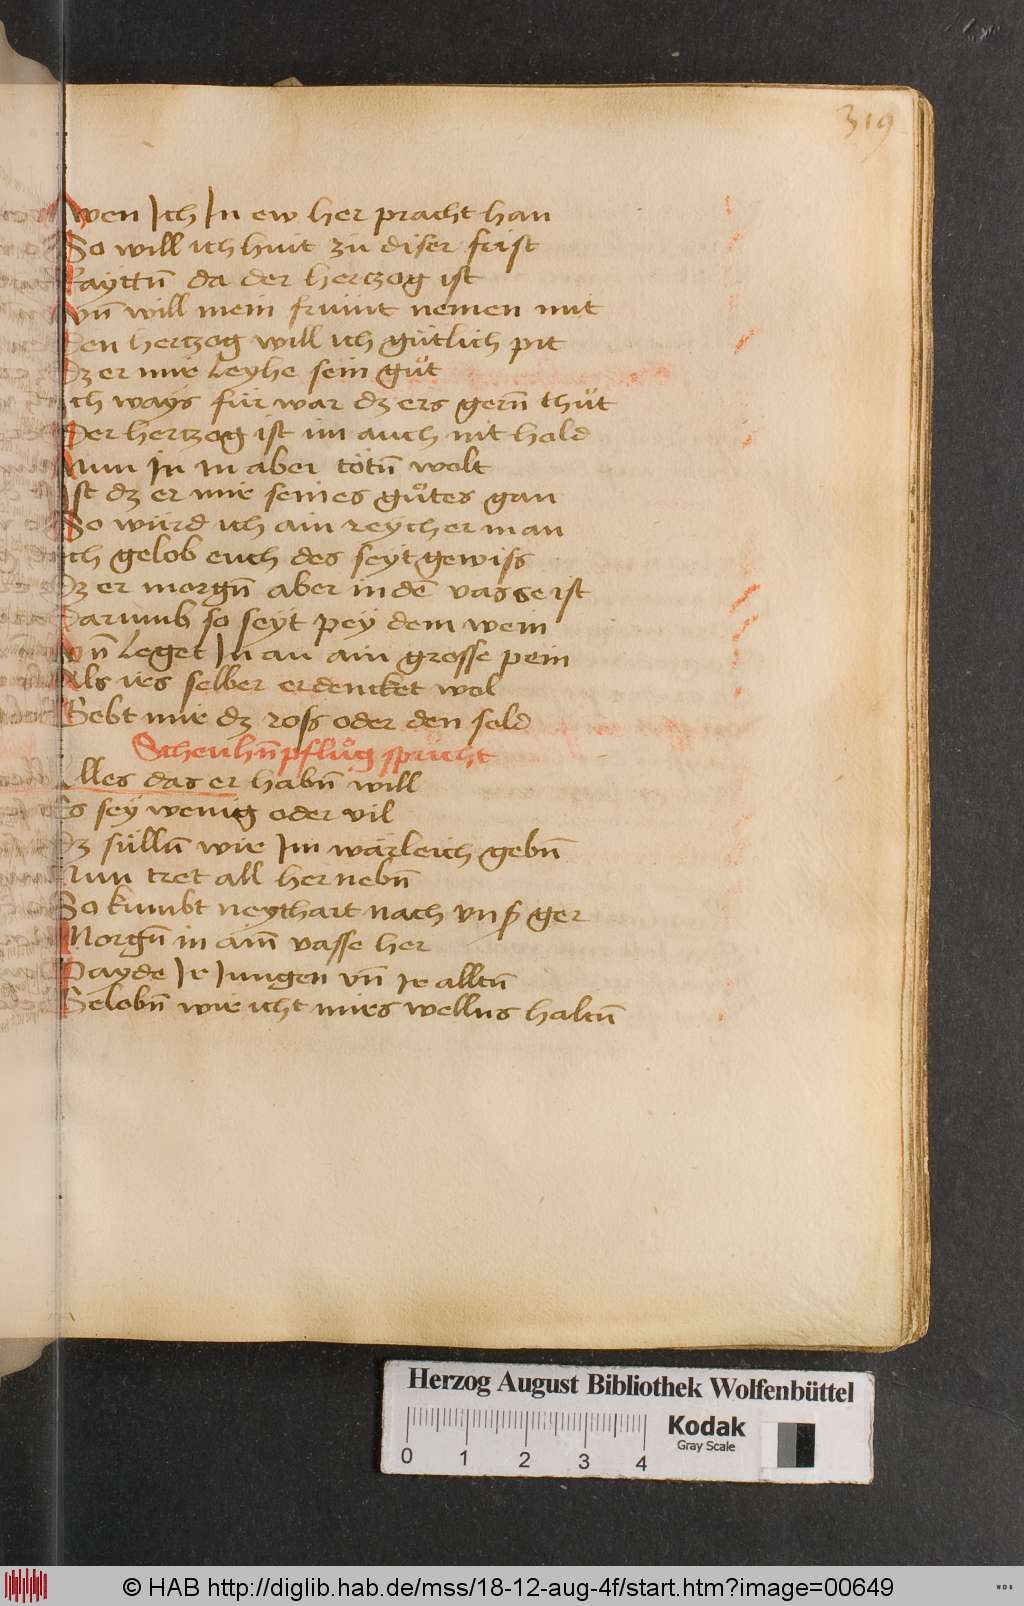 319
wen Ich In ew her pracht han
So will ich huit zu diser frist
Rayttn̄ da der hertzog ist
vn̄ will mein fruint nemen mit
Den hertzog will ich gütlich pit
Dz er mir Leyhe sein gůt
Ich ways für war dz ers gern̄ thůt
Der hertzog ist im auch nit hold
Nun In m aber tötn̄ wolt
Ist dz er mir seines gůtes gan
So würd ich ain reycher man
Ich gelob euch des seyt gewiss
Dz er morgn̄ aber in dē vasse ist
Darumb so seyt pey dem wein
Vn̄ Leget In an ain grosse pein
Als irs selber erdencket wol
Gebt mir dz ross oder den sold
Scheuhn̄pflůg spricht
Alles das er habn̄ will
Es sey wenig oder vil
Dz sülln̄ wir Im wärleich gebn̄
Nun tret all her nebn̄
So kumbt neythart nach vnser ger
Morgn̄ in aim̄ vasse her
Bayde Ir Jungen vn̄ Ir alltn̄
Gelobn̄ wir icht mirs wellns haltn̄
Herzog August Bibliothek Wolfenbüttel
Kodak
Gray Scale
0 1 2 3 4
© HAB http://diglib.hab.de/mss/18-12-aug-4f/start.htm?image=00649